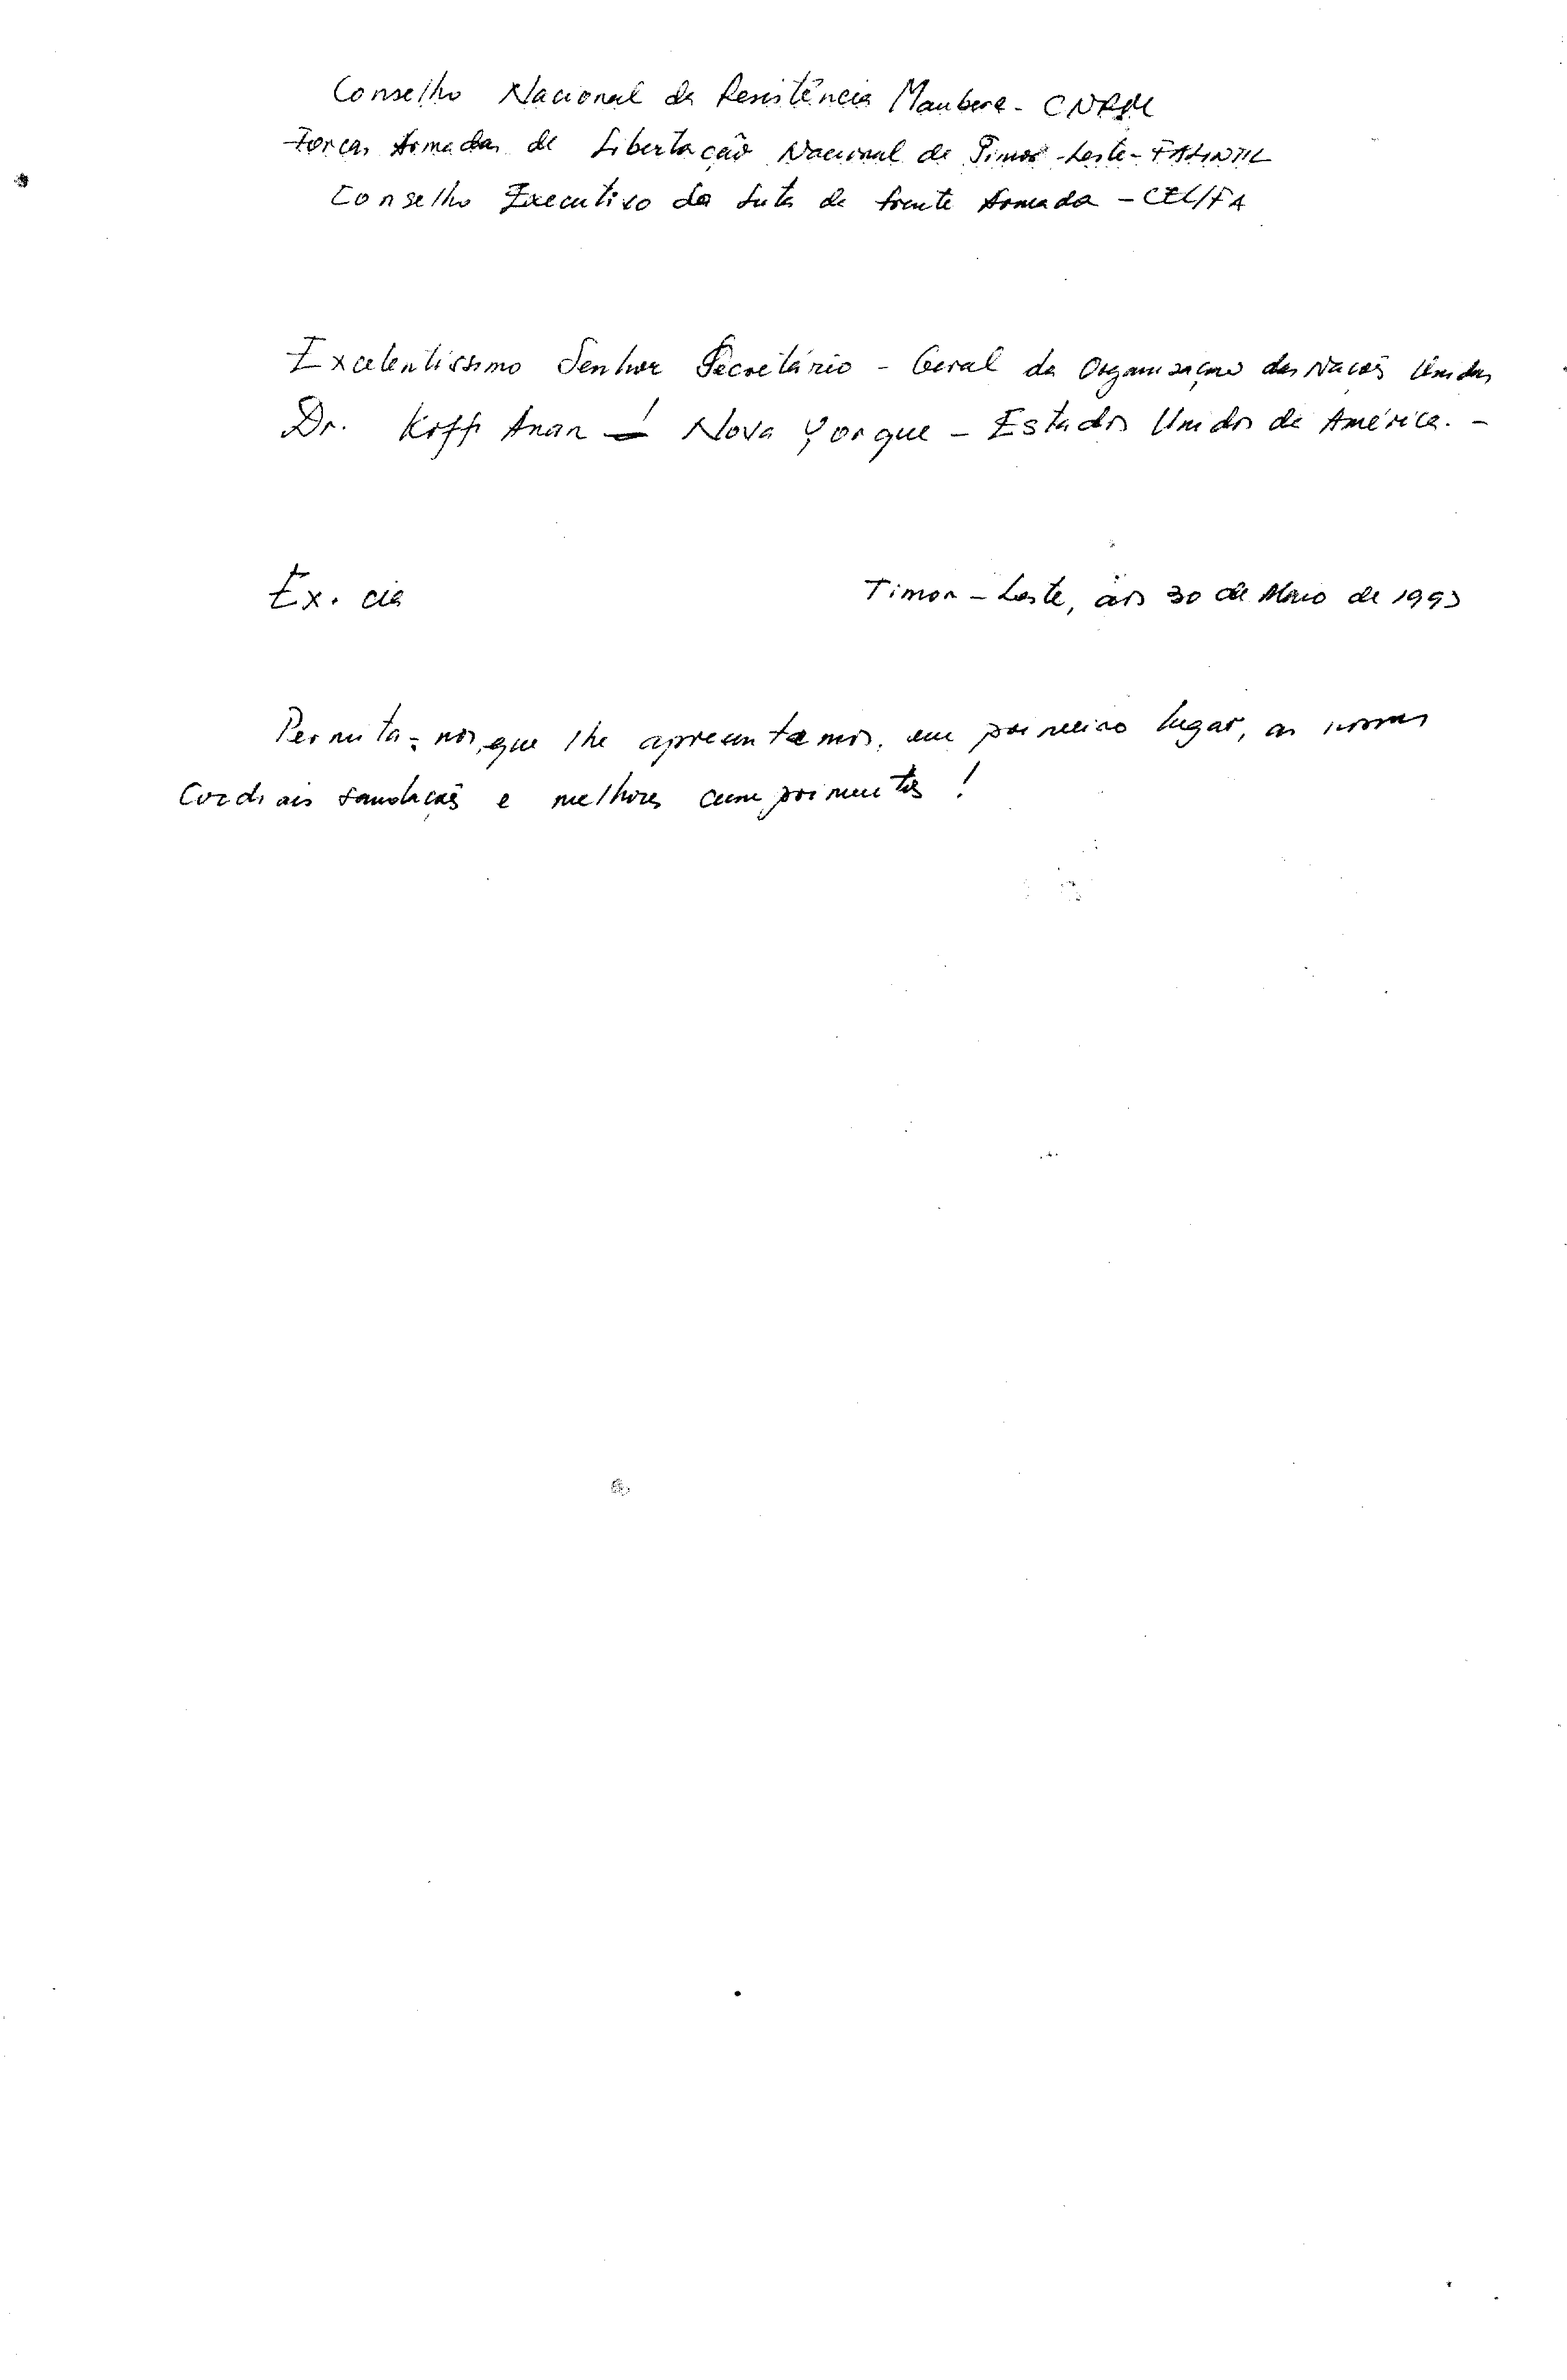 Conselho Nacional da Resistência Maubere - CNRM
Forças Armadas de Libertação Nacional de Timor-Leste - FALINTIL
Conselho Executivo da Luta de frente Armada - CEL/FA
Excelentíssimo Senhor Secretário - Geral da Organização das Nações Unidas
Dr. Koffi Anan -! Nova Yorque - Estados Unidos de América. -
Ex. cia
Timor - Leste, aos 30 de Maio de
Permita-nos, que lhe apresentamos, em primeiro lugar, as nossas
Cordiais saudações e melhores cumprimentos !